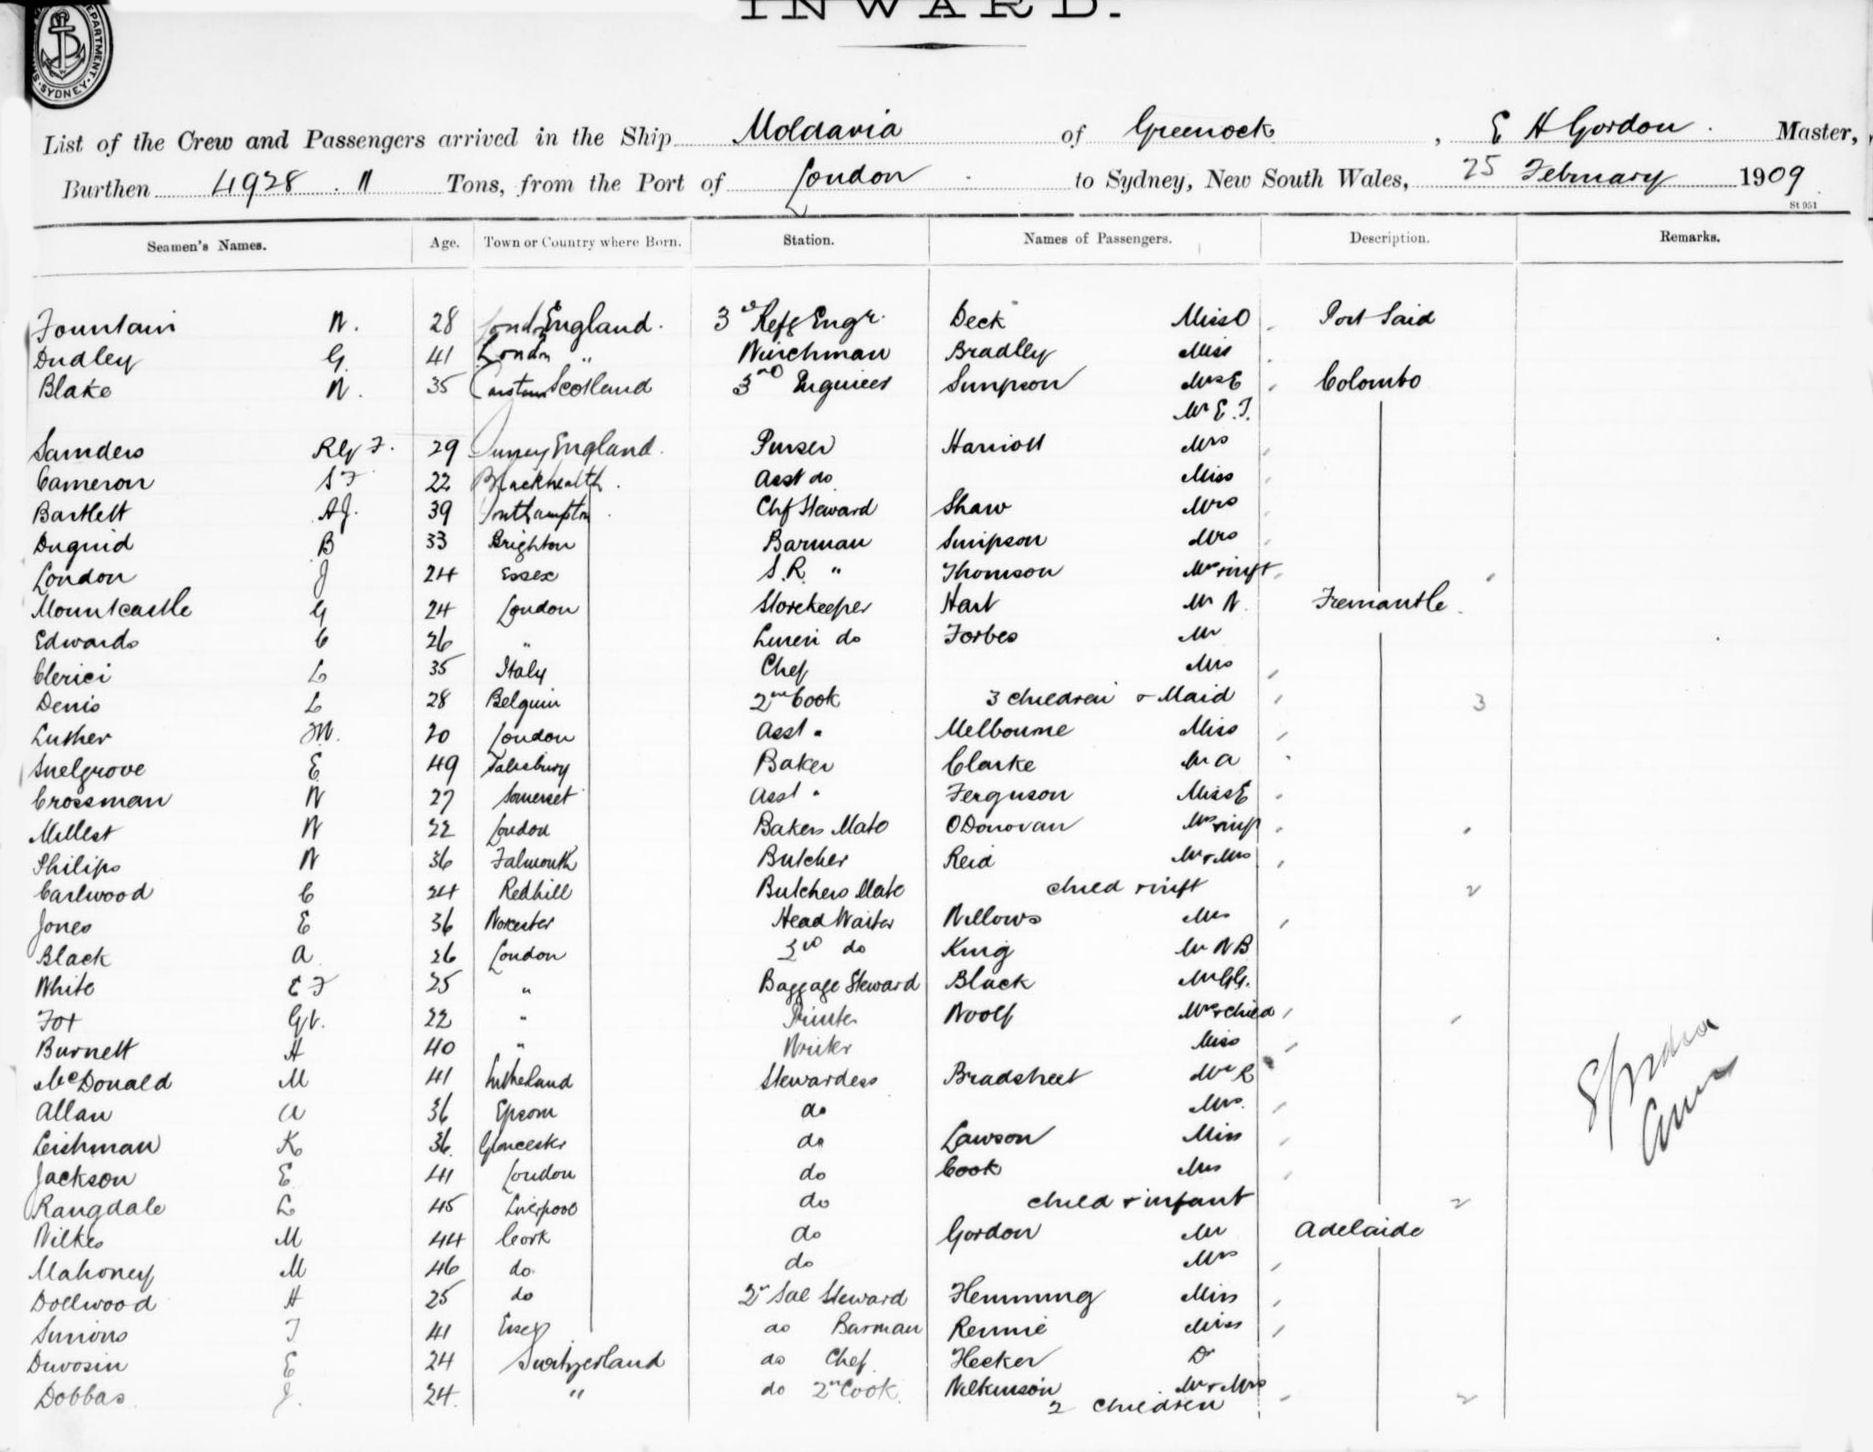 INWARD.
DEPARTMENT. SYDNEY.
List of the Crew and Passengers arrived in the Ship Moldavia of Greenock, E H Gordon. Master,
Burthen 4928 . 11 Tons, from the Port of London to Sydney, New South Wales, 25 February 1909
St 951
Seamen's Names. Age. Town or Country where Born. Station. Names of Passengers. Description. Remarks.
Fountain W. 28 England. 3rd Refg Engr. Deck Miss O Port Said
Dudley G. 41 London " Winchman Bradley Miss
Blake W. 35 Scotland 3rd Engineer Simpson Mrs E Colombo
Mr E. J.
Saunders F. 29 Surrey England. Purser Harriott Mrs
Cameron S F 22 Blackheath. Asst do Miss
Bartlett A J. 39 Southampton Chf Steward Shaw Mrs
Duguid B 33 Brighton Barman Simpson Mrs
London J 24 Essex S.R. " Thomson Mrs & inft
Mountcastle G 24 London Storekeeper Hart Mr W. Fremantle.
Edwards C 26 " Linen do Forbes Mr
Clerici L 35 Italy Chef Mrs
Denis L 28 Belguim 2nd Cook 3 children & Maid 3
Luther M. 20 London Asst " Melbourne Miss
Snelgrove E 49 Salisbury Baker Clarke Mr A
Crossman W 27 Somerset Asst " Ferguson Miss E
Millest W 22 London Bakers Mate O Donovan Mrs & inf
Philips W 36 Falmouth Butcher Reid Mr & Mrs
Carlwood C 24 Redhill Butchers Mate child & inft 2
Jones E 36 Worcester Head Waiter Willows Mrs
Black A 26 London do King Mr W B
White E F 25 " Baggage Steward Black Mr G G.
Fox 22 " Printer Woolf Mrs & child
Burnett H 40 " Miss
McDonald M 41 Stewardess Bradstreet Mr R
Allan A 36 Epsom do Mrs.
Leishman K 36. Gloucester do Lawson Miss
Jackson E 41 London do Cook Mrs
Rangdale L 45 Liverpool do child & infant 2
Wilkes M 44 Cork do Gordon Mr Adelaide
Mahoney M 46 do. do Mrs
Dollwood H 25 do 2nd Sal Steward Hemming Miss
Simons J 41 Essex do Barman Rennie Miss
Duvosin E 24 Switzerland do Chef. Hecker Dr
Dobbas J. 24. " do 2nd Cook. Wilkinson Mr & Mrs
2 children 2